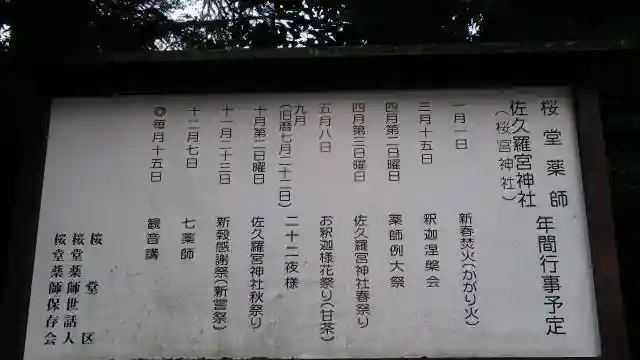 桜堂薬師
佐久羅宮神社
（桜宮神社）
年間行事予定
一月一日 新春焚火（かがり火）
三月十五日 釈迦涅槃会
四月第二日曜日 薬師例大祭
四月第三日曜日 佐久羅宮神社春祭り
五月八日 お釈迦様花祭り（甘茶）
九月
（旧暦七月二十二日） 二十二夜様
十月第二日曜日 佐久羅宮神社秋祭り
十一月二十三日 新穀感謝祭（新嘗祭）
十二月七日 七薬師
◎毎月十五日 観音講
桜堂区
桜堂薬師世話人
桜堂薬師保存会